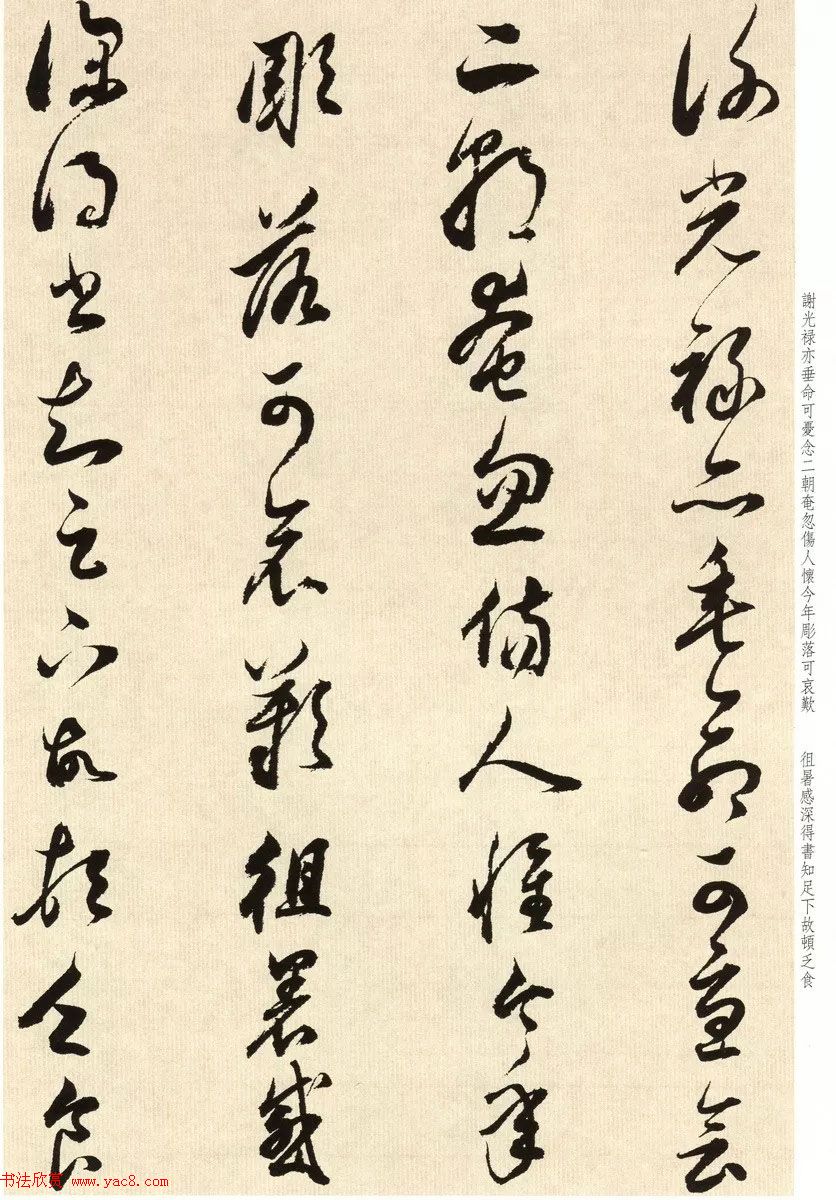 謝光禄亦垂命可憂念
二朝奄忽傷人懷今年
彫落可哀歎徂暑感
深得書知足下故頓乏食
謝光禄亦垂命可憂念二朝奄忽傷人懷今年彫落可哀歎
徂暑感深得書知足下故頓乏食
书法欣赏 www.yac8.com